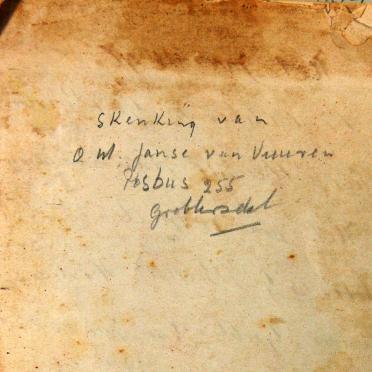 Skenking van
O. W. Janse van Vuuren
Posbus 255
Groblersdal